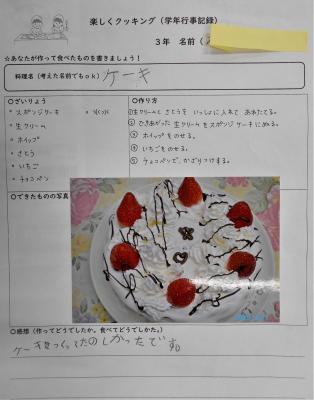 楽しくクッキング（学年行事記録）
３年 名前（
☆あなたが作って食べたものを書きましょう！
料理名（考えた名前でもｏｋ）ケーキ
○ざいりょう
・スポンジケーキ ・氷水
・生クリーム
・ホイップ
・さとう
・いちご
・チョコペン
○作り方
①生クリームとさとうを いっしょに入れて あわたてる。
② できあがった 生クリームをスポンジケーキにぬる。
③ ホイップをのせる。
④ いちごをのせる。
⑤ チョコペンで、かざりつけする。
○できたものの写真
○感想（作ってどうでしたか。食べてどうでしたか。）
ケーキをつくってたのしかったです。